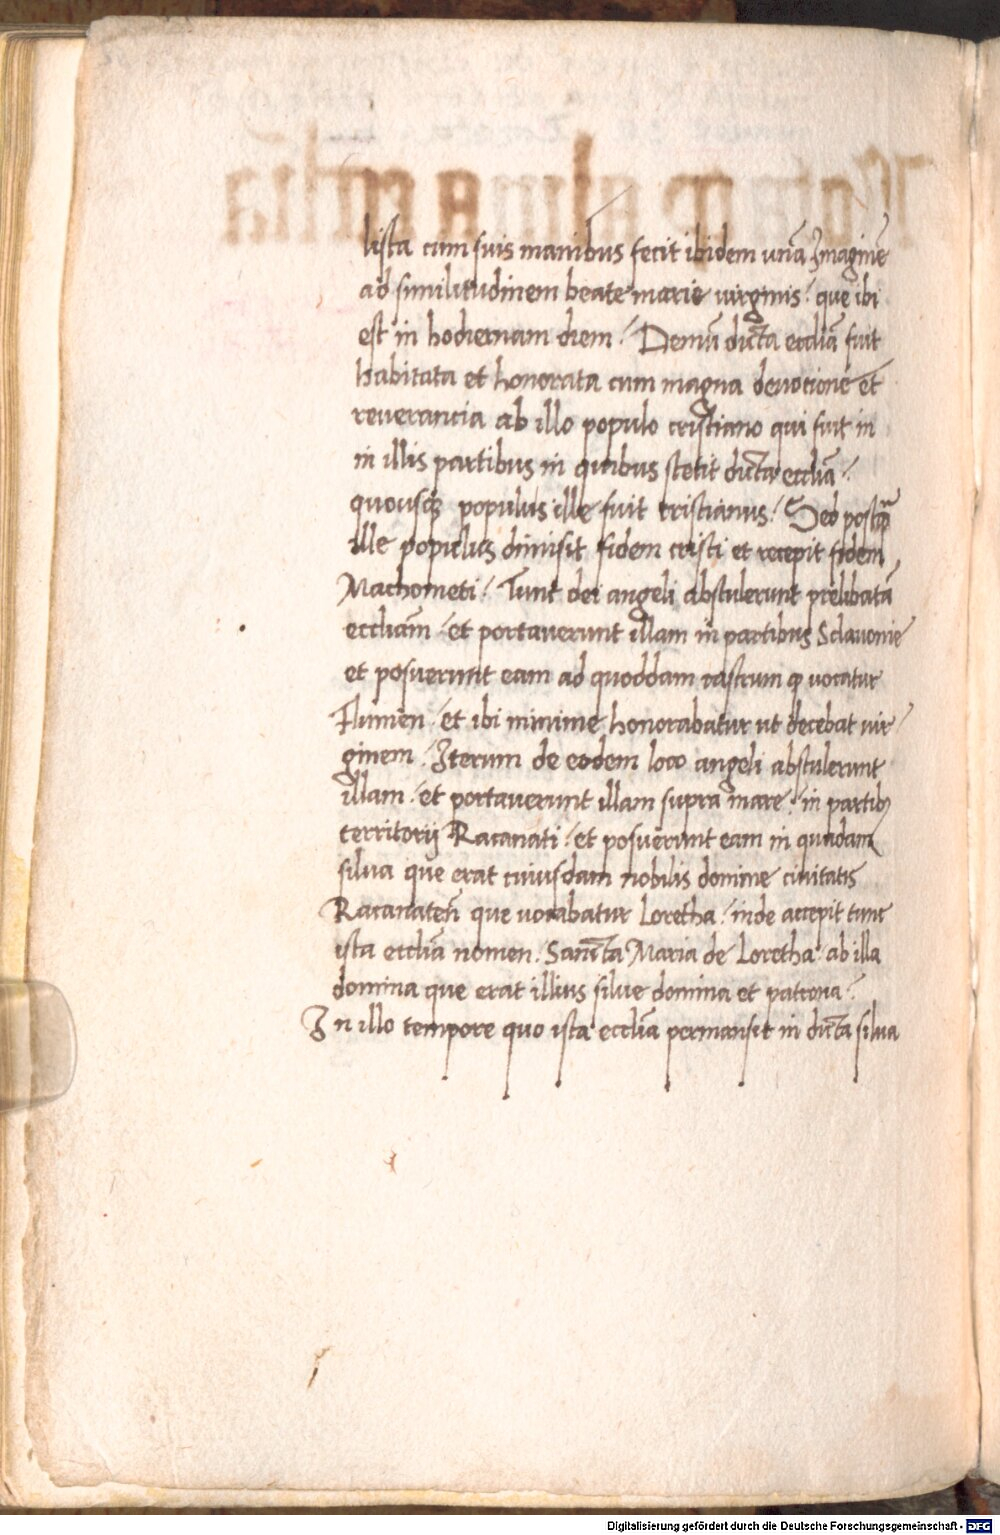 lista cum suis manibus fecit ibidem unā Imaginē
ad similitudinem beate marie virginis / que ibi
est in hodiernam diem / Demū dicta ecclīa fuit
habitata et honorata cum magna devotione et
reverancia ab illo populo cristiano qui fuit in
in illis partibus in quibus stetit dicta ecclīa /
quousq populus ille fuit cristianus / Sed postꝙ̄
ille populus dimisit fidem cristi et recepit fidem
Machometi / Tunc dei angeli abstulerunt prelibatā
eccliam / et portaverunt illam in partibus Sclavonie
et posuerunt eam ad quoddam castrum ꝙ vocatur
Flumen / et ibi minime honorabatur ut decebat vir /
ginem / Iterum de eodem loco angeli abstulerunt
illam / et portaverunt illam supra mare / in partib9
territorij Racanati / et posuerunt eam in quadam
silva que erat cuiusdam nobilis domine civitatis
Racanateñ que vocabatur Loretha / inde accepit tunc
ista ecclīa nomen / Sancta Maria de Loretha ab illa
domina que erat illius silve domina et patrona /
In illo tempore quo ista ecclīa permansit in dicta silva
Digitalisierung gefördert durch die Deutsche Forschungsgemeinschaft - DFG